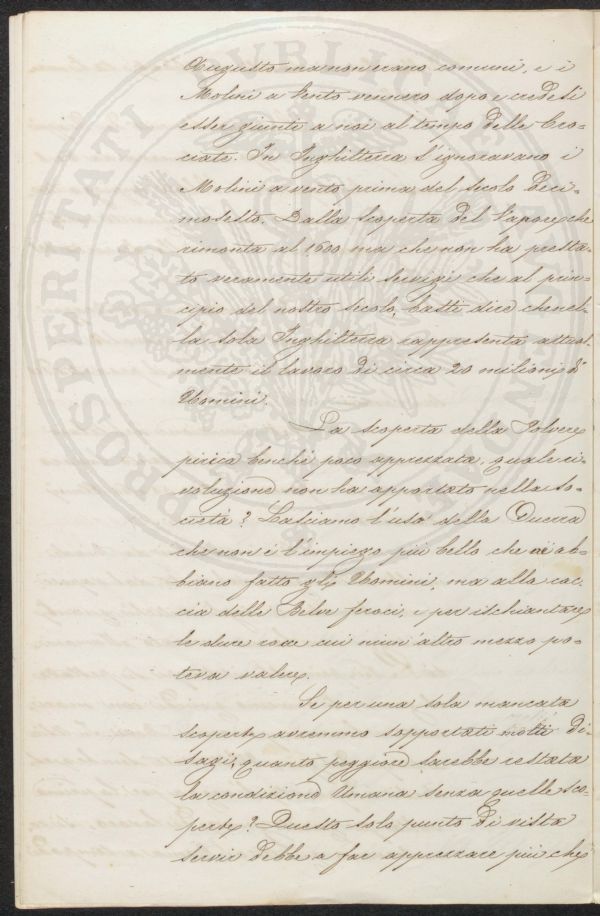 Augusto ma non erano comuni, e i
Molini a Vento vennero dopo e credesi
esser giunti a noi al tempo delle Cro=
ciate. In Inghilterra s'ignoravano i
Molini a vento prima del secolo deci=
mosesto. Dalla scoperta del Vapore che
rimonta al 1600 ma che non ha presta=
to veramente utili servizi che al prin=
cipio del nostro secolo, basti dire che nel=
la sola Inghilterra rappresenta attual=
mente il lavoro di circa 20 milioni d'
Uomini.
La scoperta della Polvere
pirica benché poco apprezzata, quale ri=
voluzione non ha apportato nella so=
cietà? Lasciamo l'uso della Guerra
che non è l'impiego più bello che ab=
biano fatto gli Uomini, ma alla cac=
cia delle Belve feroci, e per ischiantare
le dure rocce cui niun'altro mezzo po=
teva valere.
Se per una sola mancata
scoperta avremmo sopportati molti di=
sagi, quanto peggiore sarebbe restata
la condizione Umana senza quelle sco=
perte? Questo solo punto di vista
servir debbe a far apprezzare più che
PROSPERITATI PVBLICAE AVGENDAE